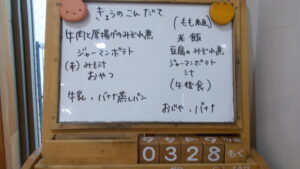 きょうのこんだて
牛肉と厚揚げのみぞれ煮
ジャーマンポテト
(未) みそ汁
おやつ
牛乳、バナナ蒸しパン
(もも組)
米飯
豆腐のみぞれ煮
ジャーマンポテト
汁
(午後食)
おじや、バナナ
0328もく